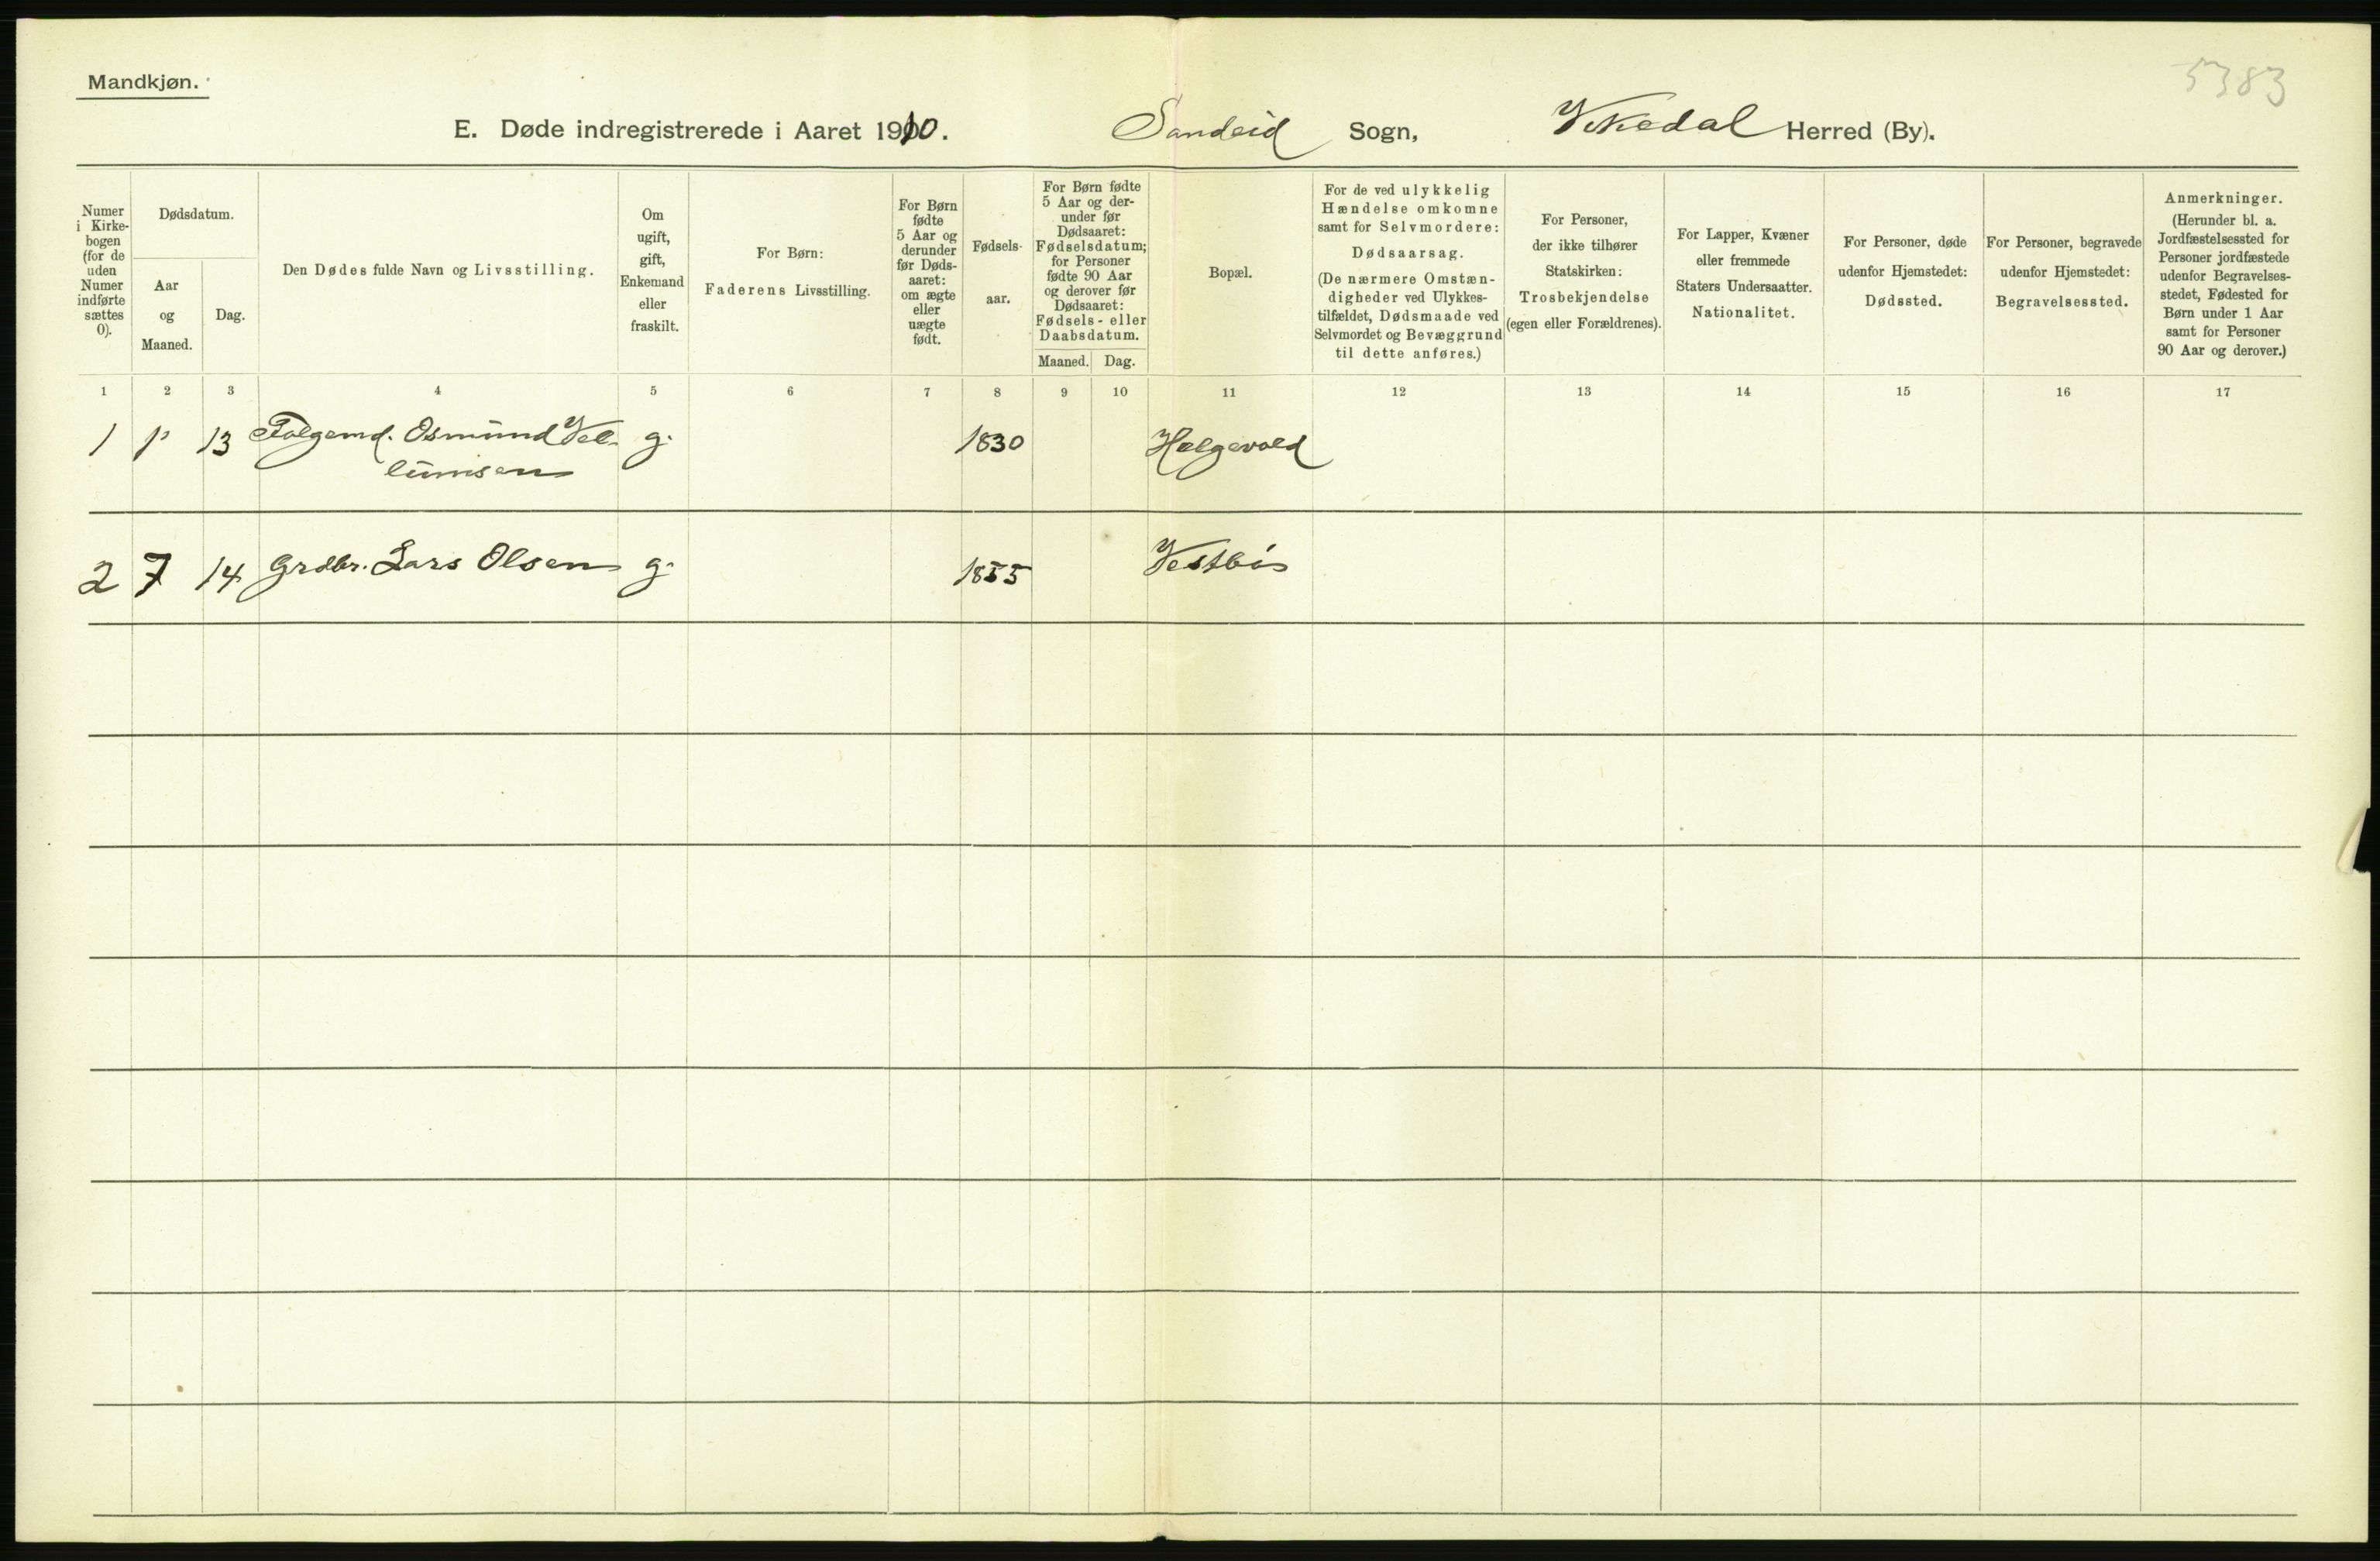 Mandkjøn.
5383
E. Døde indregistrerede i Aaret 1910. Sandeid Sogn, Vikedal Herred (By).
Numer i Kirkebogen (for de uden Numer indførte sættes 0).
Dødsdatum.
Aar og Maaned.
Dag.
Den Dødes fulde Navn og Livsstilling.
Om ugift, gift, Enkemand eller fraskilt.
For Børn: Faderens Livsstilling.
For Børn fødte 5 Aar og derunder før Dødsaaret: om ægte eller uægte født.
Fødselsaar.
For Børn fødte 5 Aar og derunder før Dødsaaret: Fødselsdatum; for Personer fødte 90 Aar og derover før Dødsaaret: Fødsels- eller Daabsdatum.
Maaned. Dag.
Bopæl.
For de ved ulykkelig Hændelse omkomne samt for Selvmordere: Dødsaarsag. (De nærmere Omstændigheder ved Ulykkestilfældet, Dødsmaade ved Selvmordet og Bevæggrund til dette anføres.)
For Personer, der ikke tilhører Statskirken: Trosbekjendelse (egen eller Forældrenes).
For Lapper, Kvæner eller fremmede Staters Undersaatter. Nationalitet.
For Personer, døde udenfor Hjemstedet: Dødssted.
For Personer, begravede udenfor Hjemstedet: Begravelsessted.
Anmerkninger. (Herunder bl. a. Jordfæstelsessted for Personer jordfæstede udenfor Begravelsesstedet, Fødested for Børn under 1 Aar samt for Personer 90 Aar og derover.)
1 2 3 4 5 6 7 8 9 10 11 12 13 14 15 16 17
1 13 Folgemd. Osmund g. 1830 Helgevold
2 7 14 Grdbr. Lars Olsen g. 1855 Vestbø